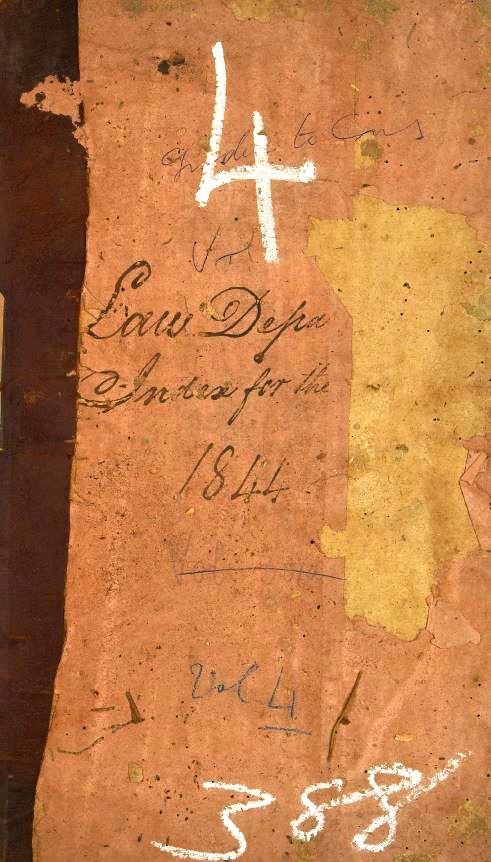 4
Index to Cons
Vol
Law Depa
Index for the
1844
Vol 4
388